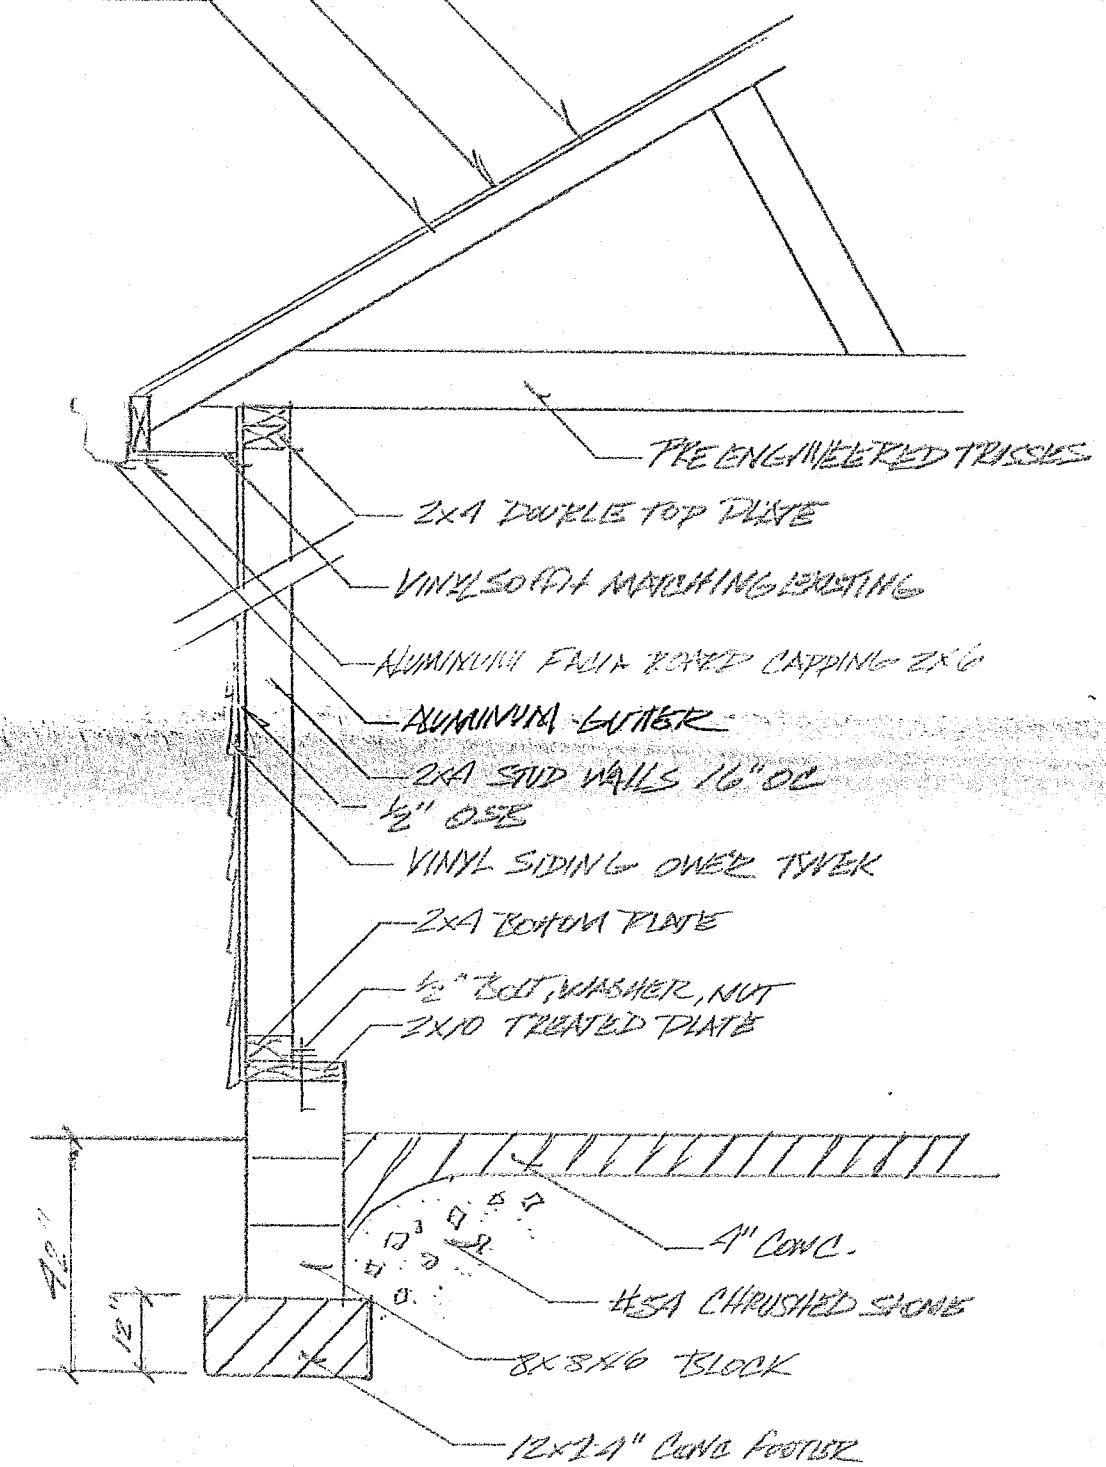 PRE ENGINEERED TRUSSES
2x4 DOUBLE TOP PLATE
VINYL SOFFIT MATCHING EXISTING
ALUMINUM FACIA BOARD CAPPING 2x6
ALUMINUM GUTTER
2x4 STUD WALLS 16" OC
½" OSB
VINYL SIDING OWER TYVEK
2x4 BOTTOM PLATE
½" BOLT, WASHER, NUT
2x10 TREATED PLATE
42"
12"
4" CONC.
#5A CHRUSHED STONE
8x8x16 BLOCK
12x24" CONC FOOTER